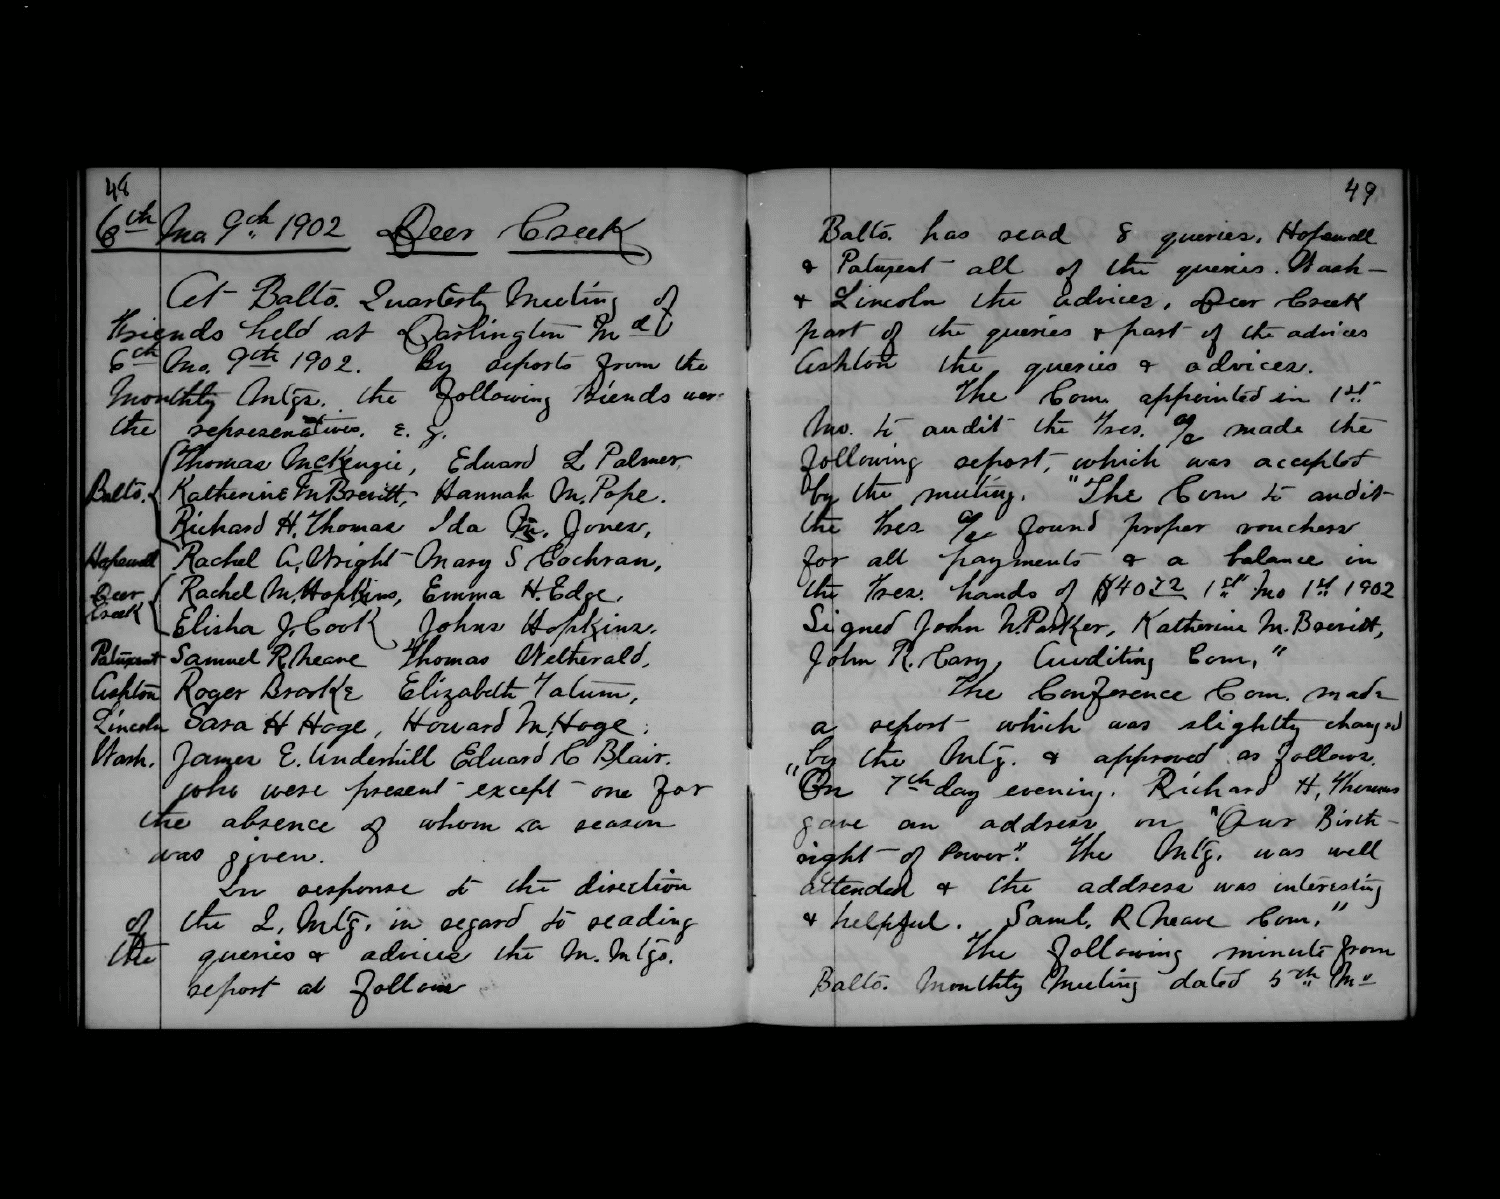 48
6th Mo 9th 1902 Deer Creek
At Balto. Quarterly Meeting of
Friends held at Darlington Md
6th Mo. 9th 1902. By reports from the
Monthly Mtgs. the following Friends were
the representatives. e. g.
Thomas McKenzie, Edward L Palmer,
Balto. Katherine M Brevitt, Hannah M. Pope.
Richard H. Thomas Ida M. Jones,
Hopewell Rachel A. Wright Mary S Cochran,
Deer Creek Rachel M. Hopkins, Emma H. Edge,
Elisha J. Cook Johns Hopkins.
Patuxent Samuel R. Neave Thomas Wetherald,
Ashton Roger Brooke Elizabeth Tatum,
Lincoln Sara H Hoge, Howard M. Hoge.
Wash. James E. Underhill Edward C Blair.
who were present except one for
the absence of whom a reason
was given.
In response to the direction
of the Q. Mtg. in regard to reading
the queries & advices the M. Mtgs.
report as follows
49
Balto. has read 8 queries. Hopewell
& Patuxent all of the queries. Wash
& Lincoln the advices, Deer Creek
part of the queries & part of the advices
Ashton the queries & advices.
The Com. appointed in 1st
Mo. to audit the Tres. a/c made the
following report, which was accepted
by the meeting. "The Com to audit
the Tres a/c found proper vouchers
for all payments & a balance in
the Tres. hands of $40 22 1st Mo 1st 1902
Signed John N. Parker, Katherine M. Brevitt,
John R. Cary, Auditing Com."
The Conference Com. made
a report which was slightly changed
by the Mtg. & approved as follows.
"On 7th day evening. Richard H. Thomas
gave an address on "Our Birth-
right of Power". The Mtg. was well
attended & the address was interesting
& helpful. Saml. R Neave Com."
The following minute from
Balto. Monthly Meeting dated 5th Mo